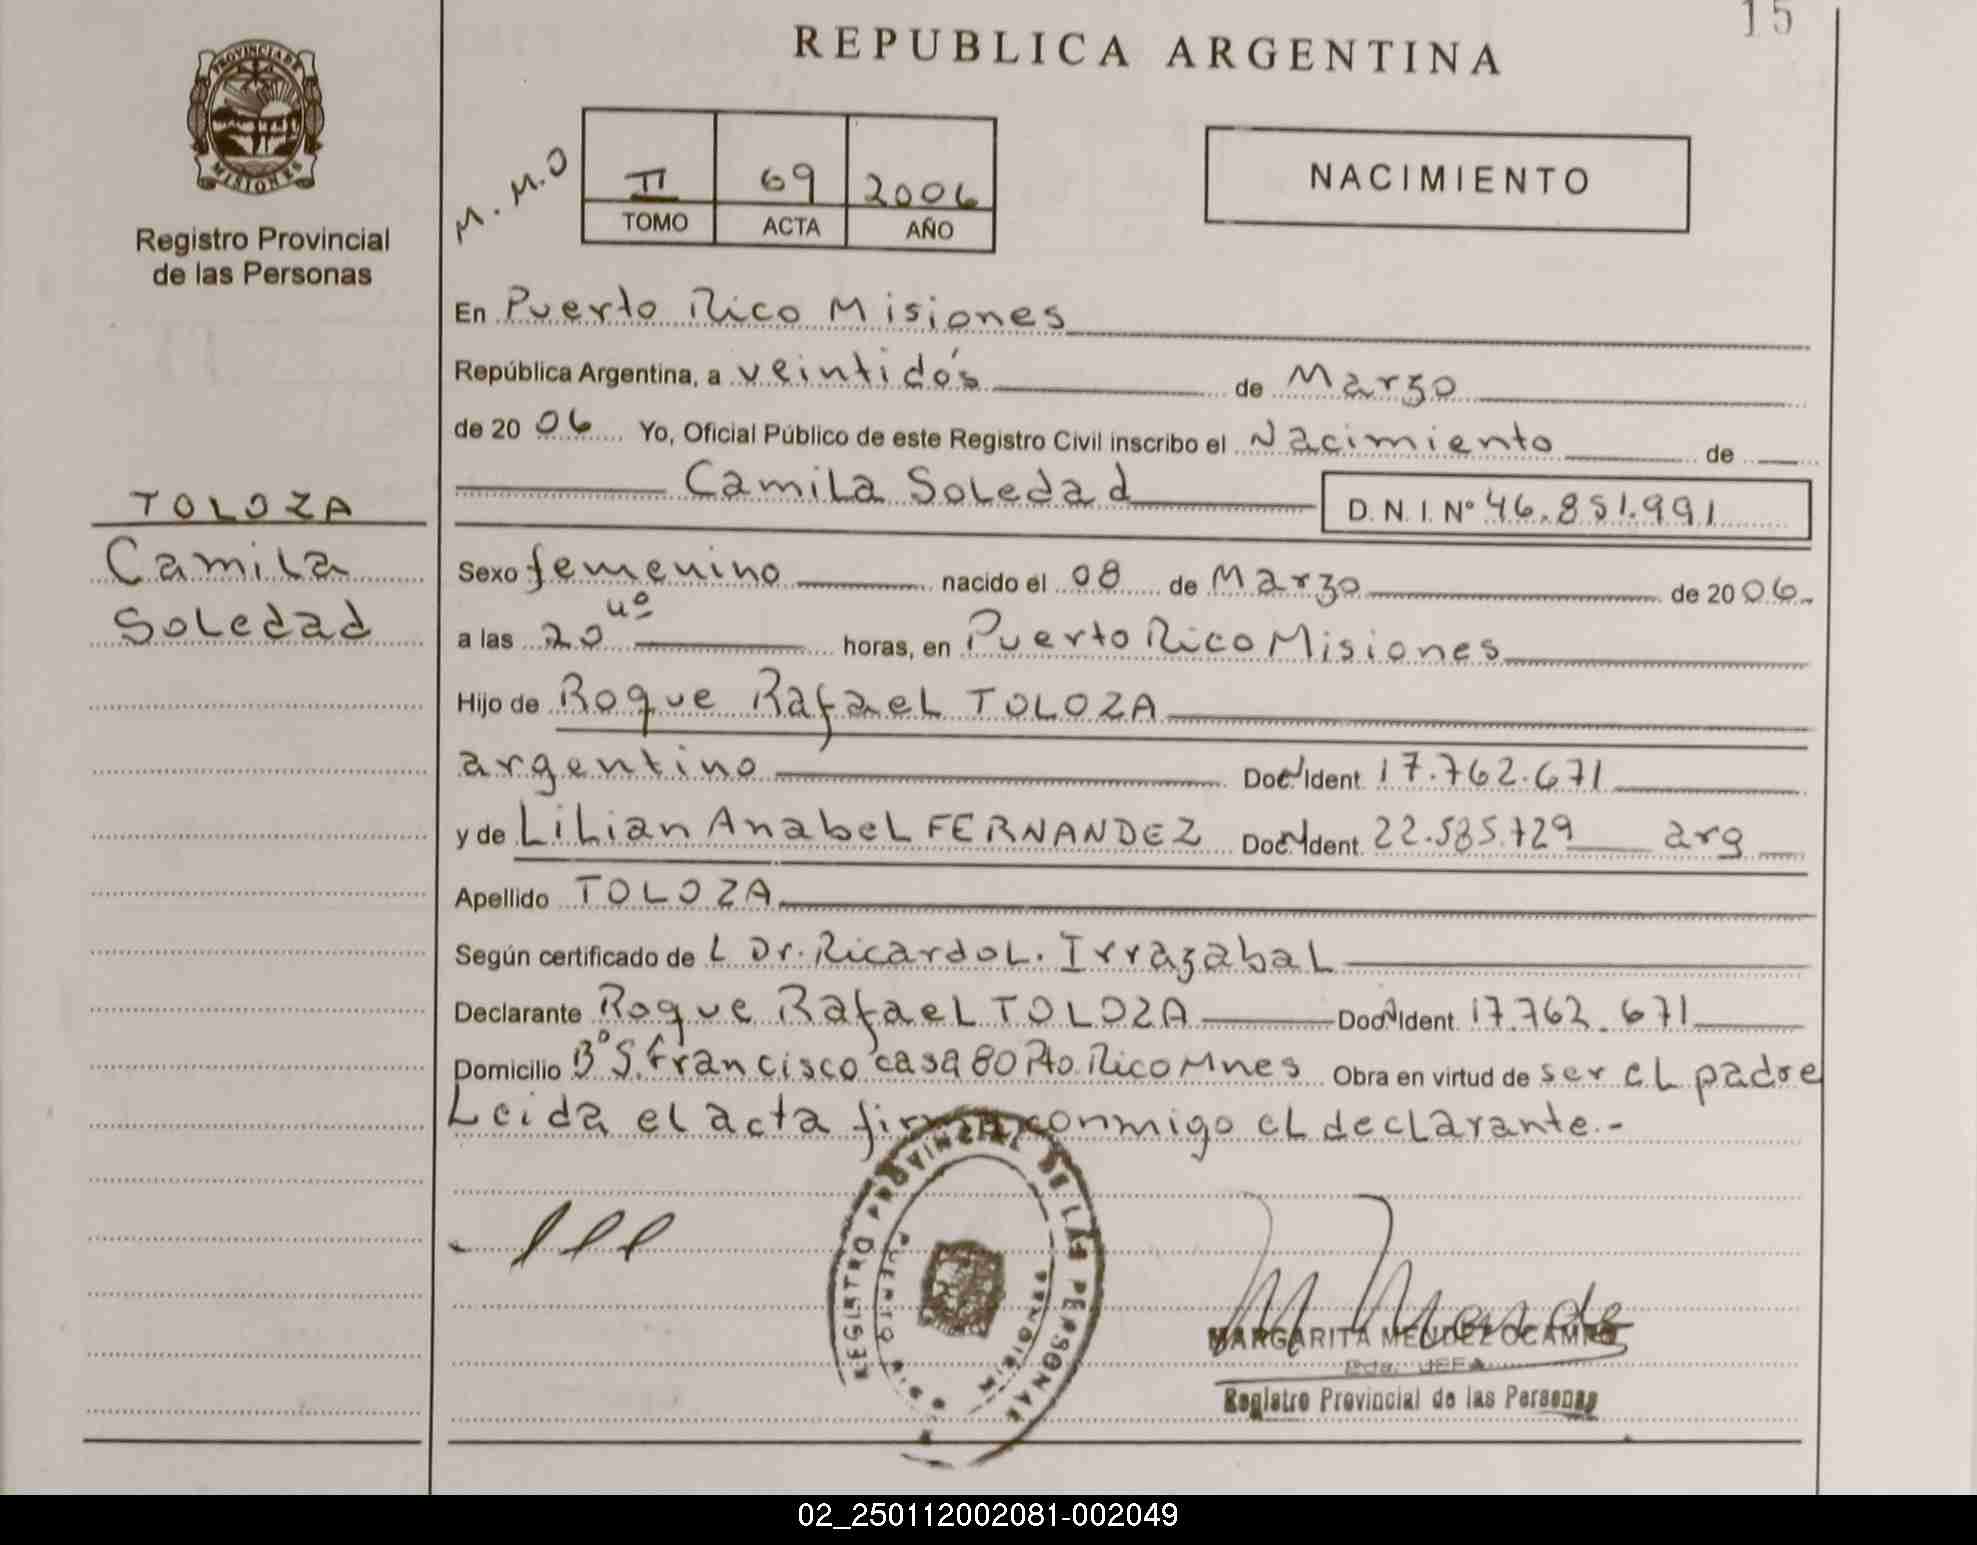 15
REPUBLICA ARGENTINA
PROVINCIA DE
MISIONES
Registro Provincial
de las Personas
M.M.O
II 69 2006
TOMO ACTA AÑO
NACIMIENTO
En Puerto Rico Misiones
República Argentina, a veintidós de Marzo
de 20 06 Yo, Oficial Público de este Registro Civil inscribo el Nacimiento de
Camila Soledad D.N.I. Nº 46.851.991
TOLOZA
Camila
Soledad
Sexo femenino nacido el 08 de Marzo de 20 06.
a las 20 4º horas, en Puerto Rico Misiones
Hijo de Roque Rafael TOLOZA
argentino Doc. Ident. 17.762.671
y de Lilian Anabel FERNANDEZ Doc. Ident. 22.585.729 arg
Apellido TOLOZA
Según certificado de L Dr. Ricardo L. Irrazabal
Declarante Roque Rafael TOLOZA Doc. Ident. 17.762.671
Domicilio Bº S. Francisco casa 80 Pto. Rico Mnes Obra en virtud de ser el padre
Leida el acta firma conmigo el declarante.-
REGISTRO PROVINCIAL DE LAS PERSONAS
MARGARITA MENDEZ OCAMPO
Eda. JEFA
Registro Provincial de las Personas
02_250112002081-002049